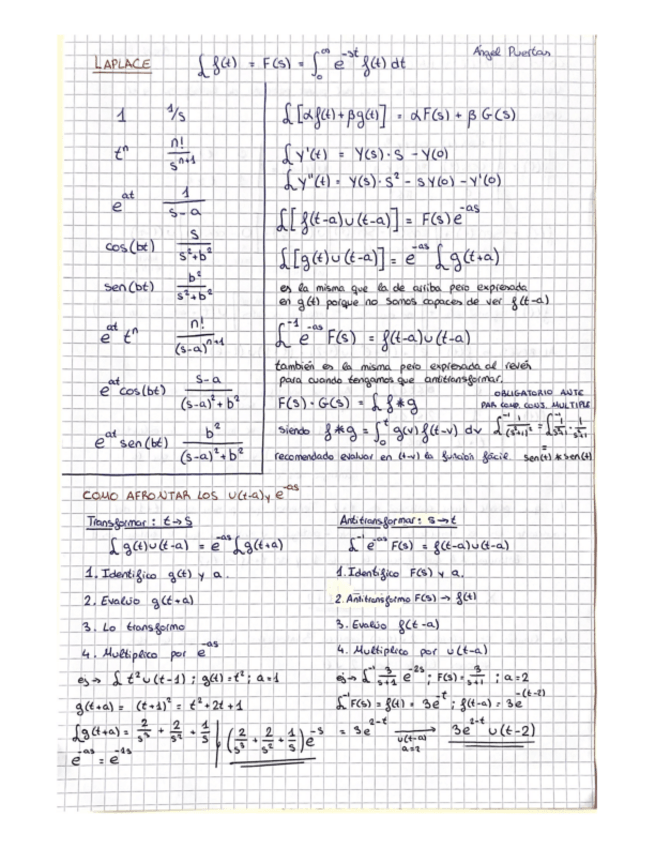 Angel Puertas
LAPLACE ℒ f(t) = F(s) = ∫₀^∞ e^-st f(t) dt
1 1/s
t^n n!/s^n+1
e^at 1/(s-a)
cos(bt) s/(s²+b²)
sen(bt) b²/(s²+b²)
e^at t^n n!/(s-a)^n+1
e^at cos(bt) (s-a)/((s-a)²+b²)
e^at sen(bt) b²/((s-a)²+b²)
ℒ[αf(t)+βg(t)] = αF(s) + βG(s)
ℒ y'(t) = Y(s)·s - Y(0)
ℒ y''(t) = Y(s)·s² - sY(0) - Y'(0)
ℒ[f(t-a)u(t-a)] = F(s)e^-as
ℒ[g(t)u(t-a)] = e^-as ℒ g(t+a)
es la misma que la de arriba pero expresada
en g(t) porque no somos capaces de ver f(t-a)
ℒ^-1 e^-as F(s) = f(t-a)u(t-a)
también es la misma pero expresada al revés
para cuando tengamos que antitransformar.
F(s)·G(s) = ℒ f*g
OBLIGATORIO ANTE
PAR COMP. CONJ. MULTIPLE
siendo f*g = ∫₀^t g(v) f(t-v) dv ℒ^-1 1/(s²+1)² = ℒ^-1 1/(s²+1) · 1/(s²+1)
= sen(t)*sen(t)
recomendado evaluar en (t-v) la función fácil.
COMO AFRONTAR LOS u(t-a) y e^-as
Transformar: t→s
ℒ g(t)u(t-a) = e^-as ℒ g(t+a)
1. Identifico g(t) y a.
2. Evalúo g(t+a)
3. Lo transformo
4. Multiplico por e^-as
ej→ ℒ t² u(t-1) ; g(t)=t² ; a=1
g(t+a) = (t+1)² = t²+2t+1
ℒ g(t+a) = 2/s³ + 2/s² + 1/s | (2/s³ + 2/s² + 1/s) e^-s
e^-as = e^-1s
Antitransformar: s→t
ℒ^-1 e^-as F(s) = f(t-a)u(t-a)
1. Identifico F(s) y a.
2. Antitransformo F(s) → f(t)
3. Evalúo f(t-a)
4. Multiplico por u(t-a)
ej→ ℒ^-1 3/(s+1) e^-2s ; F(s)=3/(s+1) ; a=2
ℒ^-1 F(s) = f(t) = 3e^-t ; f(t-a) = 3e^-(t-2)
= 3e^2-t → u(t-a) a=2 3e^2-t u(t-2)